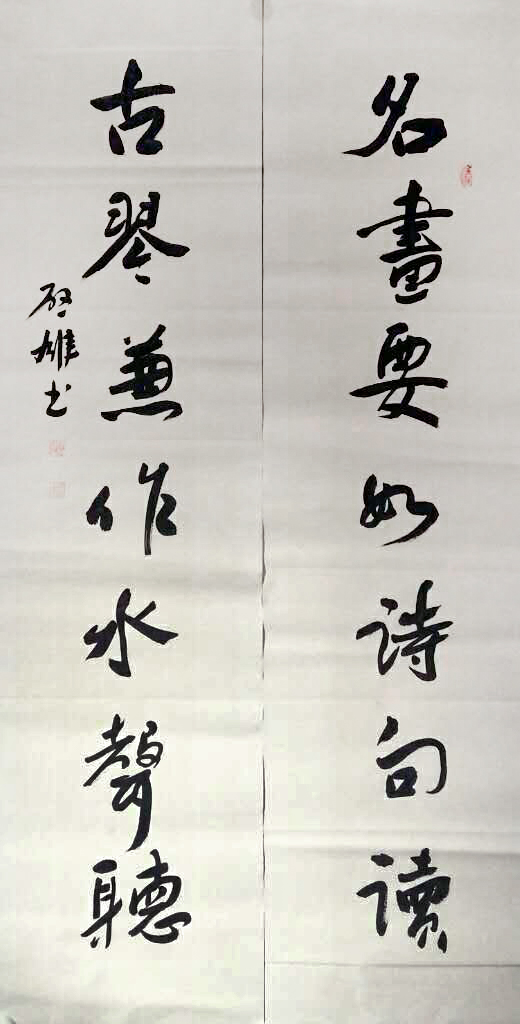 名畫要如詩句讀
古琴兼作水聲聽
啓雄书